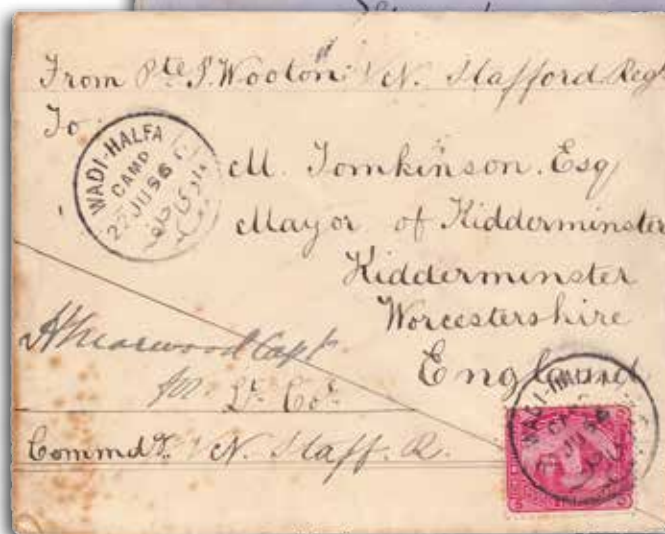 From Pte S. Wooton 1/N. Stafford Regt
To
WADI-HALFA
CAMP
27 JU 96
M. Tomkinson. Esq
Mayor of Kidderminster
Kidderminster
Worcestershire
England
Capt.
for Lt. Col.
Commdg. 1/N. Staff. R.
WADI-HALFA
CAMP
JU 96